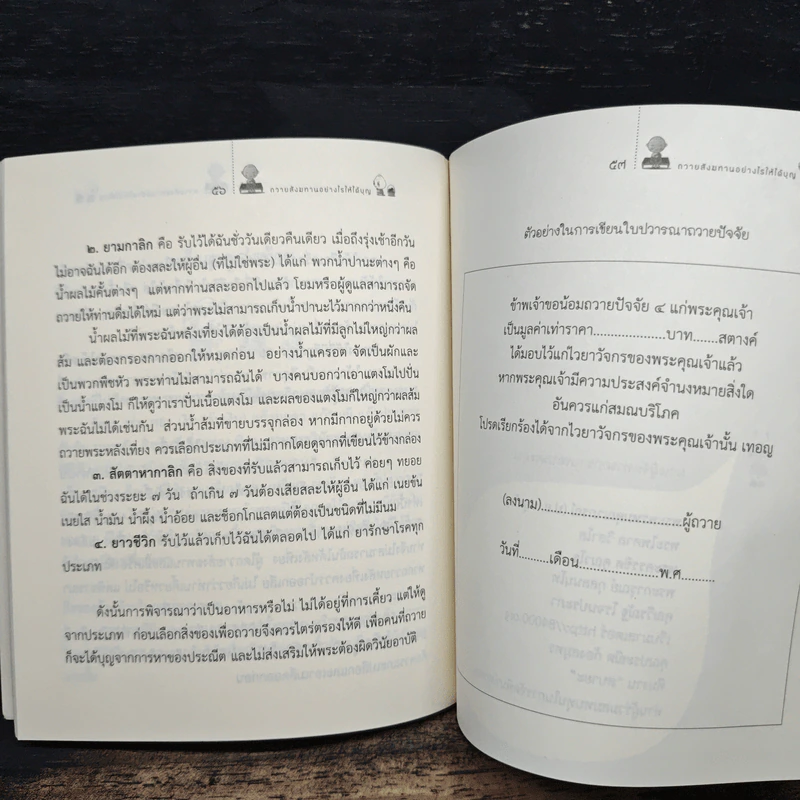 ๕๖
ถวายสังฆทานอย่างไรให้ได้บุญ
๒. ยามกาลิก คือ รับไว้ได้ฉันชั่ววันเดียวคืนเดียว เมื่อถึงรุ่งเช้าอีกวัน
ไม่อาจฉันได้อีก ต้องสละให้ผู้อื่น (ที่ไม่ใช่พระ) ได้แก่ พวกน้ำปานะต่างๆ คือ
น้ำผลไม้คั้นต่างๆ แต่หากท่านสละออกไปแล้ว โยมหรือผู้ดูแลสามารถจัด
ถวายให้ท่านดื่มได้ใหม่ แต่ว่าพระไม่สามารถเก็บน้ำปานะไว้มากกว่าหนึ่งคืน
น้ำผลไม้ที่พระฉันหลังเที่ยงได้ต้องเป็นน้ำผลไม้ที่มีลูกไม่ใหญ่กว่าผล
ส้ม และต้องกรองกากออกให้หมดก่อน อย่างน้ำแครอต จัดเป็นผักและ
เป็นพวกพืชหัว พระท่านไม่สามารถฉันได้ บางคนบอกว่าเอาแตงโมไปปั่น
เป็นน้ำแตงโม ก็ให้ดูว่าเราปั่นเนื้อแตงโม และผลของแตงโมก็ใหญ่กว่าผลส้ม
พระฉันไม่ได้เช่นกัน ส่วนน้ำส้มที่ขายบรรจุกล่อง หากมีกากอยู่ด้วยไม่ควร
ถวายพระหลังเที่ยง ควรเลือกประเภทที่ไม่มีกากโดยดูจากที่เขียนไว้ข้างกล่อง
๓. สัตตาหากาลิก คือ สิ่งของที่รับแล้วสามารถเก็บไว้ ค่อยๆ ทยอย
ฉันได้ในช่วงระยะ ๗ วัน ถ้าเกิน ๗ วันต้องเสียสละให้ผู้อื่น ได้แก่ เนยข้น
เนยใส น้ำมัน น้ำผึ้ง น้ำอ้อย และช็อกโกแลตแต่ต้องเป็นชนิดที่ไม่มีนม
๔. ยาวชีวิก รับไว้แล้วเก็บไว้ฉันได้ตลอดไป ได้แก่ ยารักษาโรคทุก
ประเภท
ดังนั้นการพิจารณาว่าเป็นอาหารหรือไม่ ไม่ได้อยู่ที่การเคี้ยว แต่ให้ดู
จากประเภท ก่อนเลือกสิ่งของเพื่อถวายจึงควรไตร่ตรองให้ดี เพื่อคนที่ถวาย
ก็จะได้บุญจากการหาของประณีต และไม่ส่งเสริมให้พระต้องผิดวินัยอาบัติ
๕๗
ถวายสังฆทานอย่างไรให้ได้บุญ
ตัวอย่างในการเขียนใบปวารณาถวายปัจจัย
ข้าพเจ้าขอน้อมถวายปัจจัย ๔ แก่พระคุณเจ้า
เป็นมูลค่าเท่าราคา..................บาท.......สตางค์
ได้มอบไว้แก่ไวยาวัจกรของพระคุณเจ้าแล้ว
หากพระคุณเจ้ามีความประสงค์จำนงหมายสิ่งใด
อันควรแก่สมณบริโภค
โปรดเรียกร้องได้จากไวยาวัจกรของพระคุณเจ้านั้น เทอญ
(ลงนาม)...................................ผู้ถวาย
วันที่.........เดือน...................พ.ศ.........